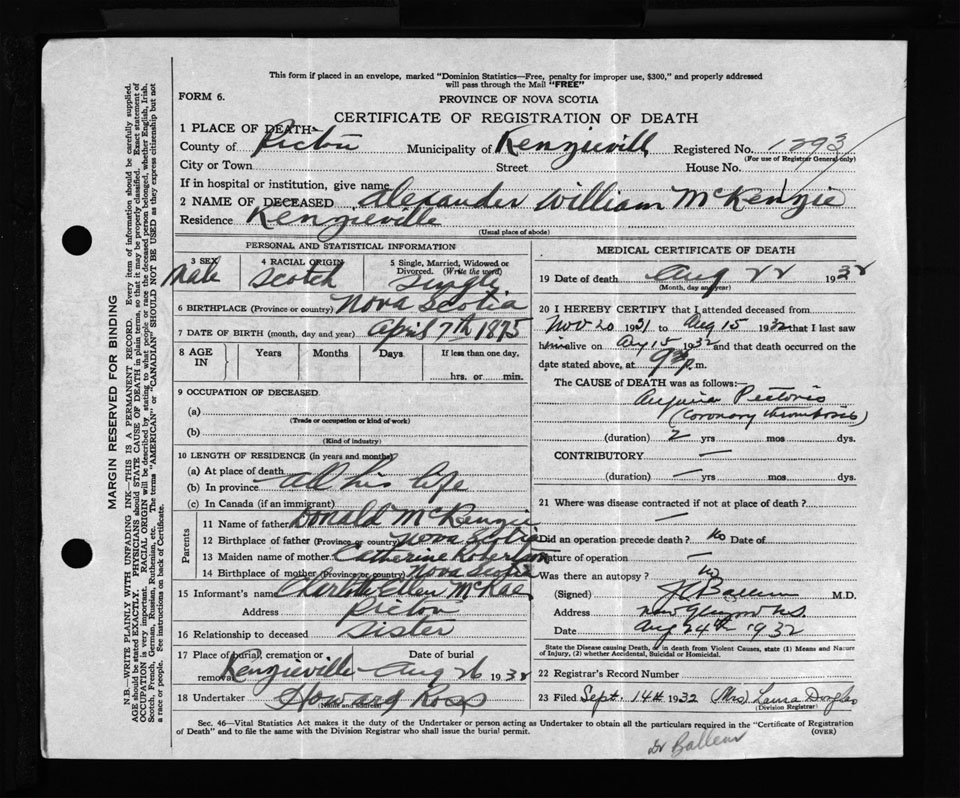 This form if placed in an envelope, marked "Dominion Statistics—Free, penalty for improper use, $300," and properly addressed
will pass through the Mail "FREE"
FORM 6.
PROVINCE OF NOVA SCOTIA
CERTIFICATE OF REGISTRATION OF DEATH
1 PLACE OF DEATH—
County of Pictou Municipality of Kenzieville Registered No. 1293
(For use of Registrar General only)
City or Town Street House No.
If in hospital or institution, give name
2 NAME OF DECEASED Alexander William McKenzie
Residence Kenzieville
(Usual place of abode)
PERSONAL AND STATISTICAL INFORMATION
3 SEX 4 RACIAL ORIGIN 5 Single, Married, Widowed or
Divorced. (Write the word)
Male Scotch Single
6 BIRTHPLACE (Province or country) Nova Scotia
7 DATE OF BIRTH (month, day and year) April 7th 1875
8 AGE IN Years Months Days If less than one day,
hrs. or min.
9 OCCUPATION OF DECEASED
(a)
(Trade or occupation or kind of work)
(b)
(Kind of industry)
10 LENGTH OF RESIDENCE (in years and months)
(a) At place of death
(b) In province all his life
(c) In Canada (if an immigrant)
Parents
11 Name of father Donald McKenzie
12 Birthplace of father (Province or country) Nova Scotia
13 Maiden name of mother Catherine Robertson
14 Birthplace of mother (Province or country) Nova Scotia
15 Informant's name Charlotte Ellen McRae
Address Pictou
16 Relationship to deceased sister
17 Place of burial, cremation or removal Date of burial
Kenzieville Aug 26 1932
18 Undertaker Howard Ross
(Name and address)
MEDICAL CERTIFICATE OF DEATH
19 Date of death Aug 22 1932
(Month, day and year)
20 I HEREBY CERTIFY that I attended deceased from
Nov 20 1931 to Aug 15 1932 that I last saw
him alive on Aug 15 1932 and that death occurred on the
date stated above, at 9 p.m.
The CAUSE of DEATH was as follows:—
Angina Pectoris
(Coronary thrombosis)
(duration) 2 yrs mos dys.
CONTRIBUTORY —
(duration) — yrs mos dys.
21 Where was disease contracted if not at place of death?
—
Did an operation precede death? No Date of
Nature of operation —
Was there an autopsy? No
(Signed) M.D.
Address New Glasgow N.S.
Date Aug 24th 1932
State the Disease causing Death, or in death from Violent Causes, state (1) Means and Nature
of Injury, (2) whether Accidental, Suicidal or Homicidal.
22 Registrar's Record Number
23 Filed Sept. 14th 1932 (Mrs) Laura Douglas
(Division Registrar)
Sec. 46—Vital Statistics Act makes it the duty of the Undertaker or person acting as Undertaker to obtain all the particulars required in the "Certificate of Registration
of Death" and to file the same with the Division Registrar who shall issue the burial permit. (OVER)
MARGIN RESERVED FOR BINDING
N.B.—WRITE PLAINLY WITH UNFADING INK—THIS IS A PERMANENT RECORD. Every item of information should be carefully supplied.
AGE should be stated EXACTLY. PHYSICIANS should STATE CAUSE OF DEATH in plain terms, so that it may be properly classified. Exact statement of
OCCUPATION is very important. RACIAL ORIGIN will be described by stating to what people or race the deceased person belonged, whether English, Irish,
Scotch, French, German, Russian, Ruthenian, etc. The terms "AMERICAN" or "CANADIAN" SHOULD NOT BE USED as they express citizenship but not
a race or people. See instructions on back of Certificate.